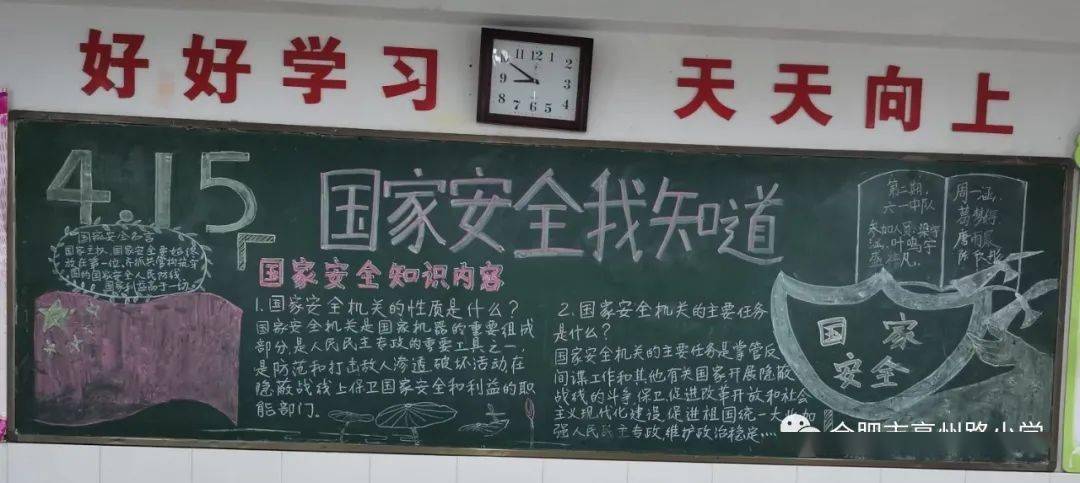 好好学习
11 12 1
10 2
9 3
8 4
7 6 5
天天向上
4.15
国家安全我知道
国家安全名言
国家主权、国家安全要始终
放在第一位
国的国家安全人民防线
国家利益高于一切
国家安全知识内容
1.国家安全机关的性质是什么?
国家安全机关是国家机器的重要组成
部分,是人民民主专政的重要工具之一
是防范和打击敌人渗透、破坏活动在
隐蔽战线上保卫国家安全和利益的职
能部门.
2.国家安全机关的主要任务
是什么?
国家安全机关的主要任务是掌管反
间谍工作和其他有关国家开展隐蔽
战线的斗争,保卫促进改革开放和社会
主义现代化建设,促进祖国统一大业,加
强人民民主专政,维护政治稳定....
第二期.
六一中队
参加人员:
叶鸣宇
周一涵.
国家
安全
合肥市亳州路小学